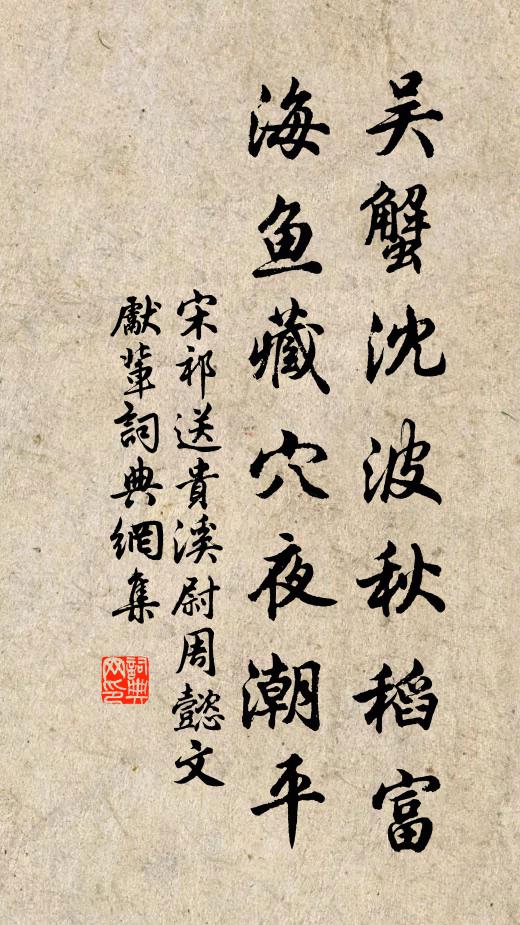 吴蟹沈波秋稻富
海鱼藏穴夜潮平
宋祁送貴溪尉周懿文
獻輩詞典網集
詞典网印